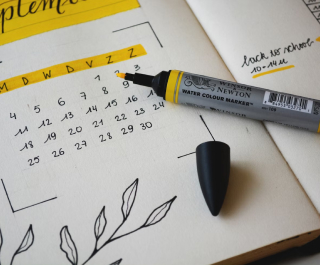 ptember
M D W D V Z Z
1 2 3
4 5 6 7 8 9
11 12 13 14 15 16
18 19 20 21 22 23 24
25 26 27 28 29 30
back to school
10-14u
WINSOR
& NEWTON
WATER COLOUR MARKER